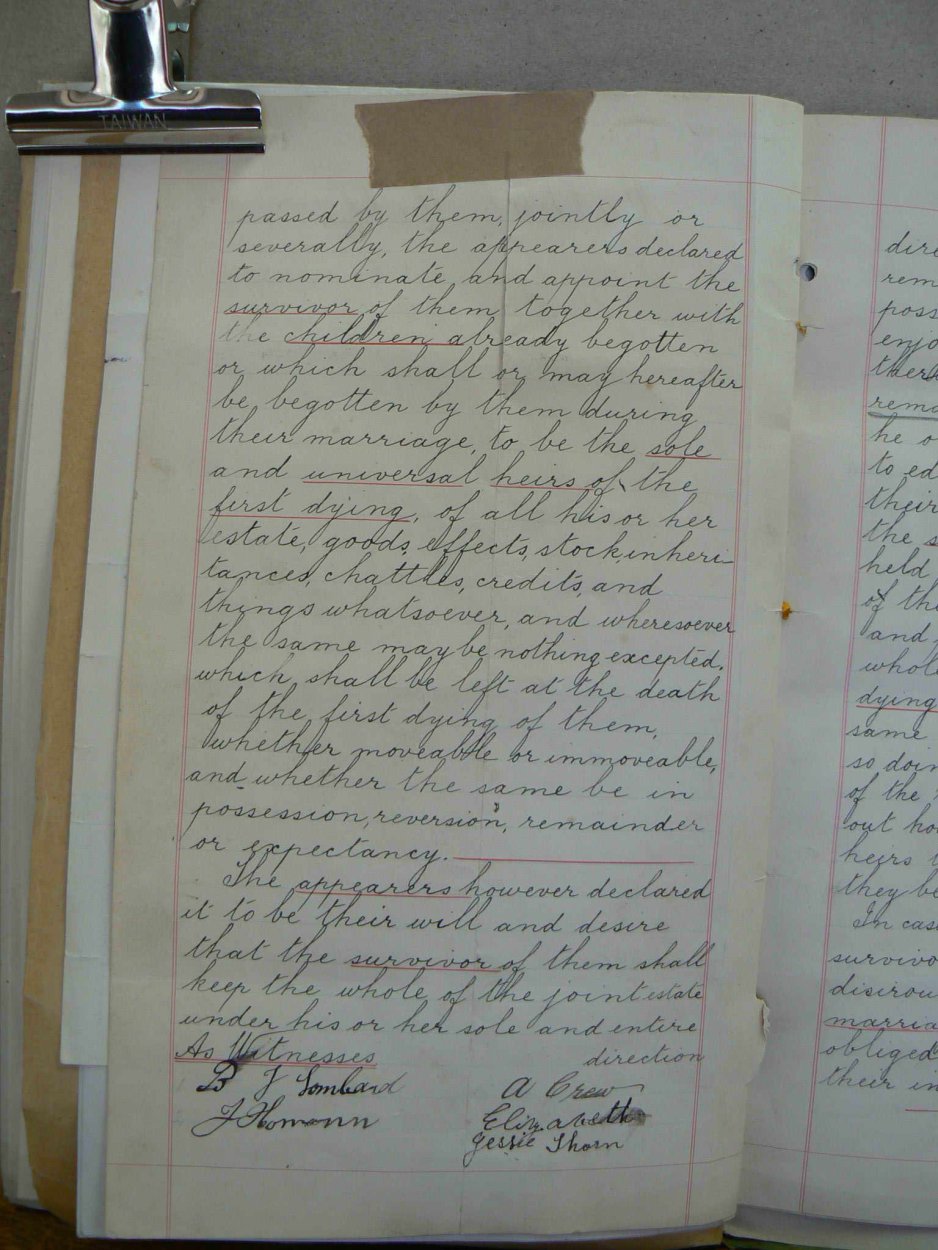 TAIWAN
passed by them, jointly or
severally, the appearers declared
to nominate and appoint the
survivor of them together with
the children already begotten
or which shall or may hereafter
be begotten by them during
their marriage, to be the sole
and universal heirs of the
first dying, of all his or her
estate, goods, effects, stock, inheri-
tances, chattles, credits, and
things whatsoever, and wheresoever
the same may be nothing excepted,
which shall be left at the death
of the first dying of them,
whether moveable or immoveable,
and whether the same be in
possession, reversion, remainder
or expectancy.
The appearers however declared
it to be their will and desire
that the survivor of them shall
keep the whole of the joint estate
under his or her sole and entire
direction
As Witnesses
B J Lombard
J Homann
A Crew
Elizabeth
Jessie Thorn
dire
rem
poss
enjo
ther
rema
he o
to ed
their
the s
held
of the
and
whole
dying
same
so doin
of the
out ho
heirs
they be
In case
survivo
disirou
marria
obliged
their in